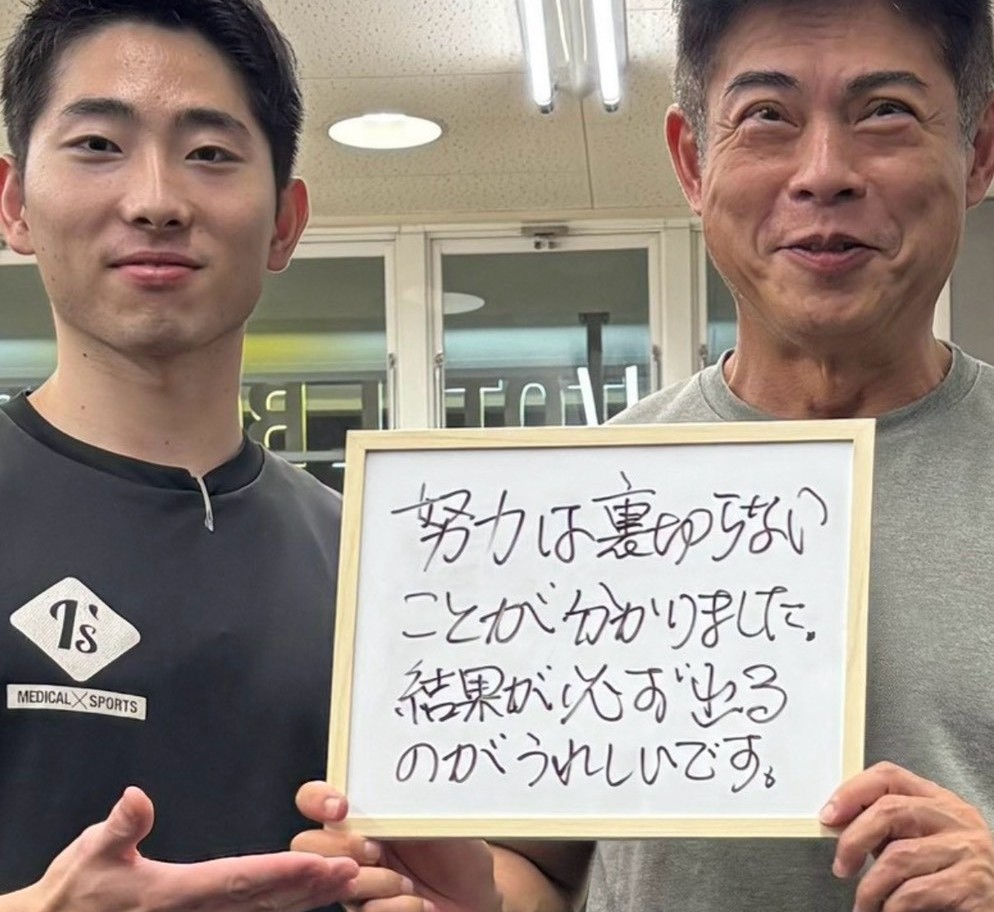 努力は裏切らない
ことが分かりました。
結果が必ず出る
のがうれしいです。
I's
MEDICAL SPORTS